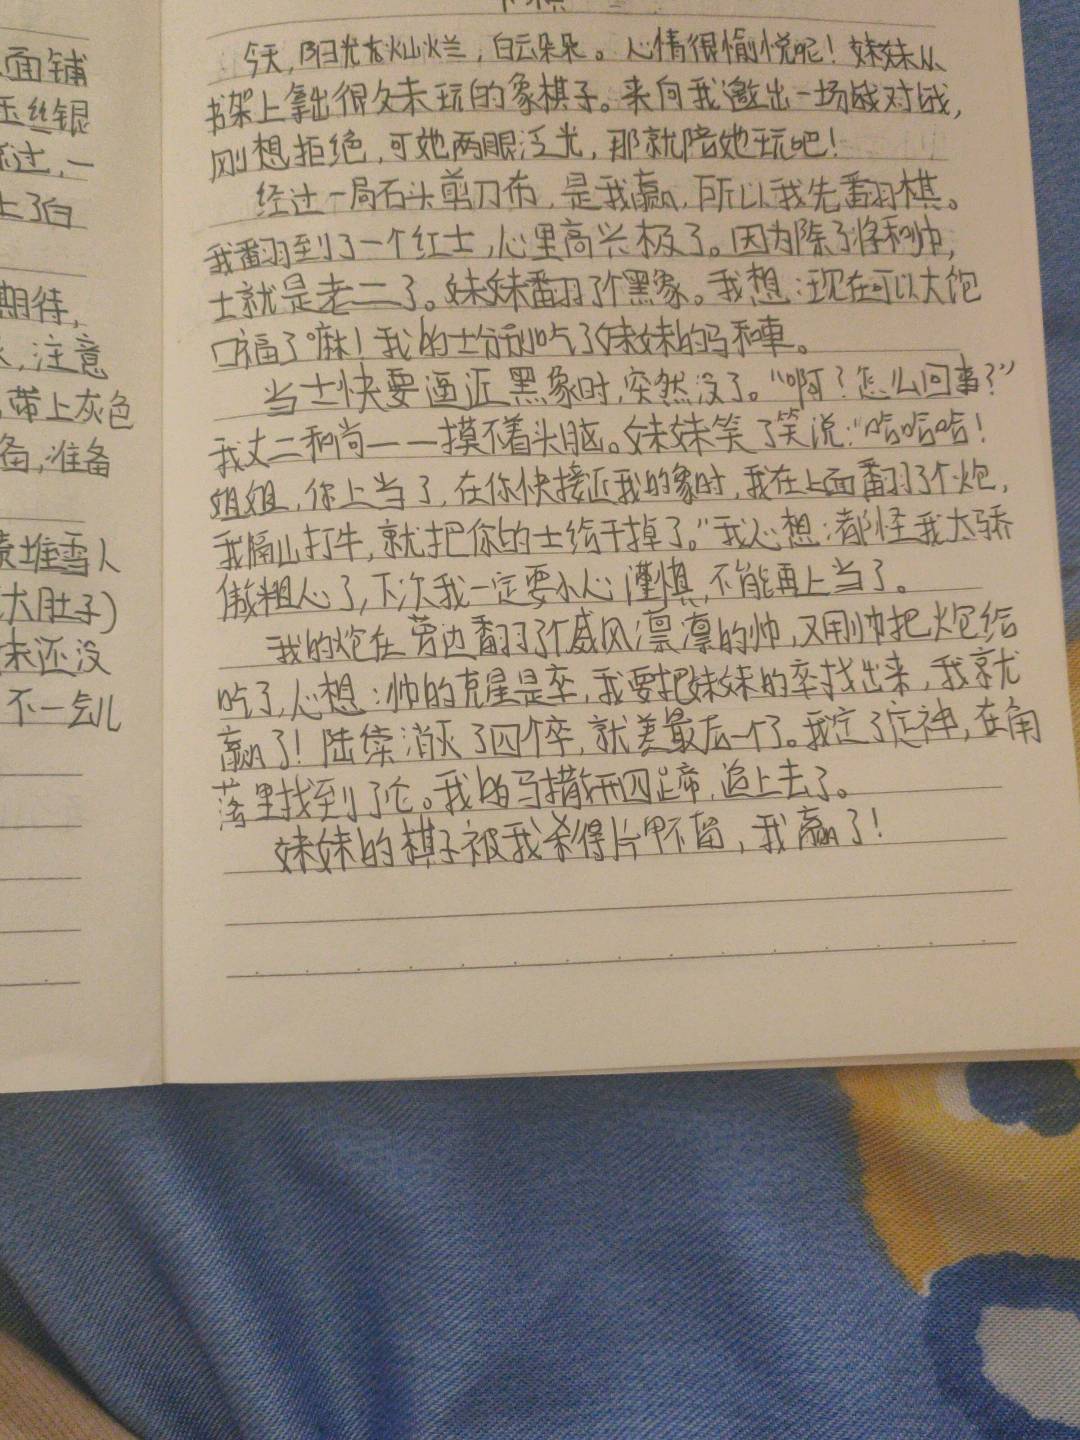 面铺
玉丝银
过,一
上了白
期待,
注意
带上灰色
备,准备
堆雪人
大肚子)
来还没
不一会儿
今天,阳光灿烂,白云朵朵。心情很愉悦呢!妹妹从
书架上拿出很久未玩的象棋子。来向我邀出一场战对战,
刚想拒绝,可她两眼泛光,那就陪她玩吧!
经过一局石头剪刀布,是我赢,所以我先翻棋。
我翻到了一个红士,心里高兴极了。因为除了将和帅,
士就是老二了。妹妹翻了个黑象。我想:现在可以大饱
口福了嘛!我的士分别吃了妹妹的马和車。
当士快要逼近黑象时,突然没了。“啊?怎么回事?”
我丈二和尚——摸不着头脑。妹妹笑了笑说:“哈哈哈!
姐姐,你上当了,在你快接近我的象时,我在上面翻了个炮,
我隔山打牛,就把你的士给干掉了。”我心想:都怪我太骄
傲粗心了,下次我一定要小心谨慎,不能再上当了。
我的炮在旁边翻了个威风凛凛的帅,又用帅把炮给
吃了,心想:帅的克星是卒,我要把妹妹的卒找出来,我就
赢了!陆续消灭了四个卒,就差最后一个了。我定了定神,在角
落里找到了它。我的马撒开四蹄,追上去了。
妹妹的棋子被我杀得片甲不留,我赢了!